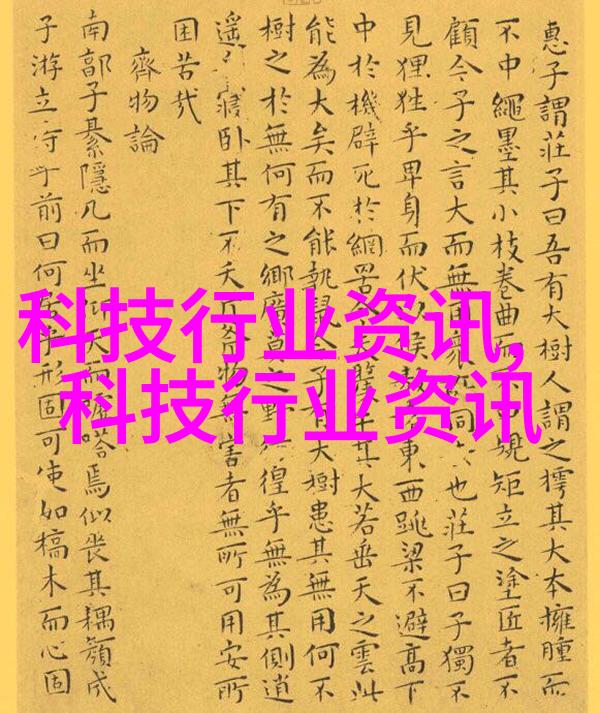 惠子謂莊子曰吾有大樹人謂之樗其大本擁腫而
不中繩墨其小枝卷曲而中規矩立之塗匠者不
顧今子之言大而無用衆所同也莊子曰子獨不
見狸狌乎卑身而伏以候敖東西跳梁不避高下
中於機辟死於網罟今夫斄牛其大若垂天之雲此
能為大矣而不能執鼠今子有大樹患其無用何不
樹之於無何有之鄉廣莫之野彷徨乎無為其側逍
遥寢卧其下不夭斤斧物無害者無所可用安所
困苦哉
齊物論
南郭子綦隱几而坐仰天而噓嗒焉似喪其耦顏成
子游立侍乎前曰何居乎形固可使如槁木而心固
科技行业资讯,
科技行业资讯